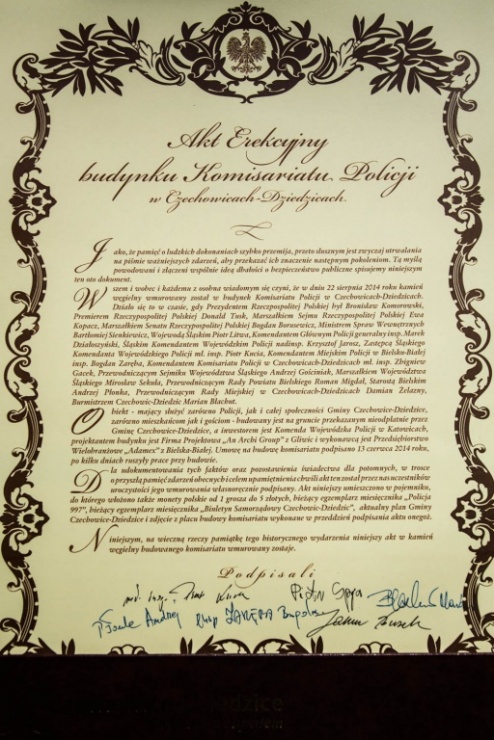 Akt Erekcyjny
budynku Komisariatu Policji
w Czechowicach-Dziedzicach
Jako, że pamięć o ludzkich dokonaniach szybko przemija, przeto słusznym jest zwyczaj utrwalania
na piśmie ważniejszych zdarzeń, aby przekazać ich znaczenie następnym pokoleniom. Tą myślą
powodowani i złączeni wspólnie ideą dbałości o bezpieczeństwo publiczne spisujemy niniejszym
ten oto dokument.
Wszem i wobec i każdemu z osobna wiadomym się czyni, że w dniu 22 sierpnia 2014 roku kamień
węgielny wmurowany został w budynek Komisariatu Policji w Czechowicach-Dziedzicach.
Działo się to w czasie, gdy Prezydentem Rzeczpospolitej Polskiej był Bronisław Komorowski,
Premierem Rzeczypospolitej Polskiej Donald Tusk, Marszałkiem Sejmu Rzeczypospolitej Polskiej Ewa
Kopacz, Marszałkiem Senatu Rzeczypospolitej Polskiej Bogdan Borusewicz, Ministrem Spraw Wewnętrznych
Bartłomiej Sienkiewicz, Wojewodą Śląskim Piotr Litwa, Komendantem Głównym Policji generalny insp. Marek
Działoszyński, Śląskim Komendantem Wojewódzkim Policji nadinsp. Krzysztof Jarosz, Zastępcą Śląskiego
Komendanta Wojewódzkiego Policji mł. insp. Piotr Kucia, Komendantem Miejskim Policji w Bielsku-Białej
insp. Bogdan Zaręba, Komendantem Komisariatu Policji w Czechowicach-Dziedzicach mł. insp. Zbigniew
Gacek, Przewodniczącym Sejmiku Województwa Śląskiego Andrzej Gościniak, Marszałkiem Województwa
Śląskiego Mirosław Sekuła, Przewodniczącym Rady Powiatu Bielskiego Roman Migdał, Starostą Bielskim
Andrzej Płonka, Przewodniczącym Rady Miejskiej w Czechowicach-Dziedzicach Damian Żelazny,
Burmistrzem Czechowic-Dziedzic Marian Błachut.
Obiekt - mający służyć zarówno Policji, jak i całej społeczności Gminy Czechowice-Dziedzice,
zarówno mieszkańcom jak i gościom - budowany jest na gruncie przekazanym nieodpłatnie przez
Gminę Czechowice-Dziedzice, a inwestorem jest Komenda Wojewódzka Policji w Katowicach,
projektantem budynku jest Firma Projektowa „An Archi Group” z Gliwic i wykonawcą jest Przedsiębiorstwo
Wielobranżowe „Adamex” z Bielska-Białej. Umowę na budowę komisariatu podpisano 13 czerwca 2014 roku,
po kilku dniach ruszyły prace przy budowie.
Dla udokumentowania tych faktów oraz pozostawienia świadectwa dla potomnych, w trosce
o przyszłą pamięć zdarzeń obecnych i celem upamiętnienia chwili akt ten został przez nas uczestników
uroczystości jego wmurowania własnoręcznie podpisany. Akt niniejszy umieszczono w pojemniku,
do którego włożono także monety polskie od 1 grosza do 5 złotych, bieżący egzemplarz miesięcznika „Policja
997”, bieżący egzemplarz miesięcznika „Biuletyn Samorządowy Czechowic-Dziedzic”, aktualny plan Gminy
Czechowice-Dziedzice i zdjęcie z placu budowy komisariatu wykonane w przeddzień podpisania aktu onegoż.
Niniejszym, na wieczną rzeczy pamiątkę tego historycznego wydarzenia niniejszy akt w kamień
węgielny budowanego komisariatu wmurowany zostaje.
Podpisali